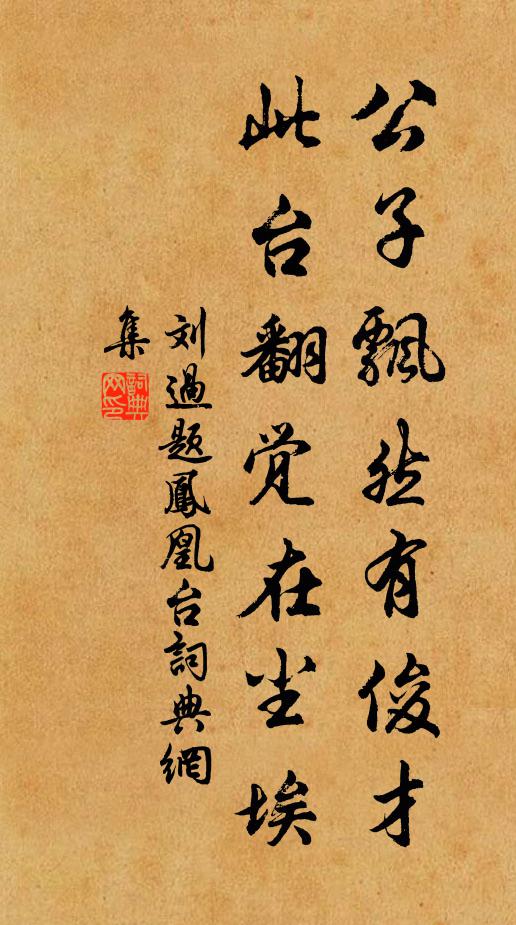 公子飄然有俊才
此台翻觉在尘埃
刘過题鳳凰台詞典網
集
詞典
网印